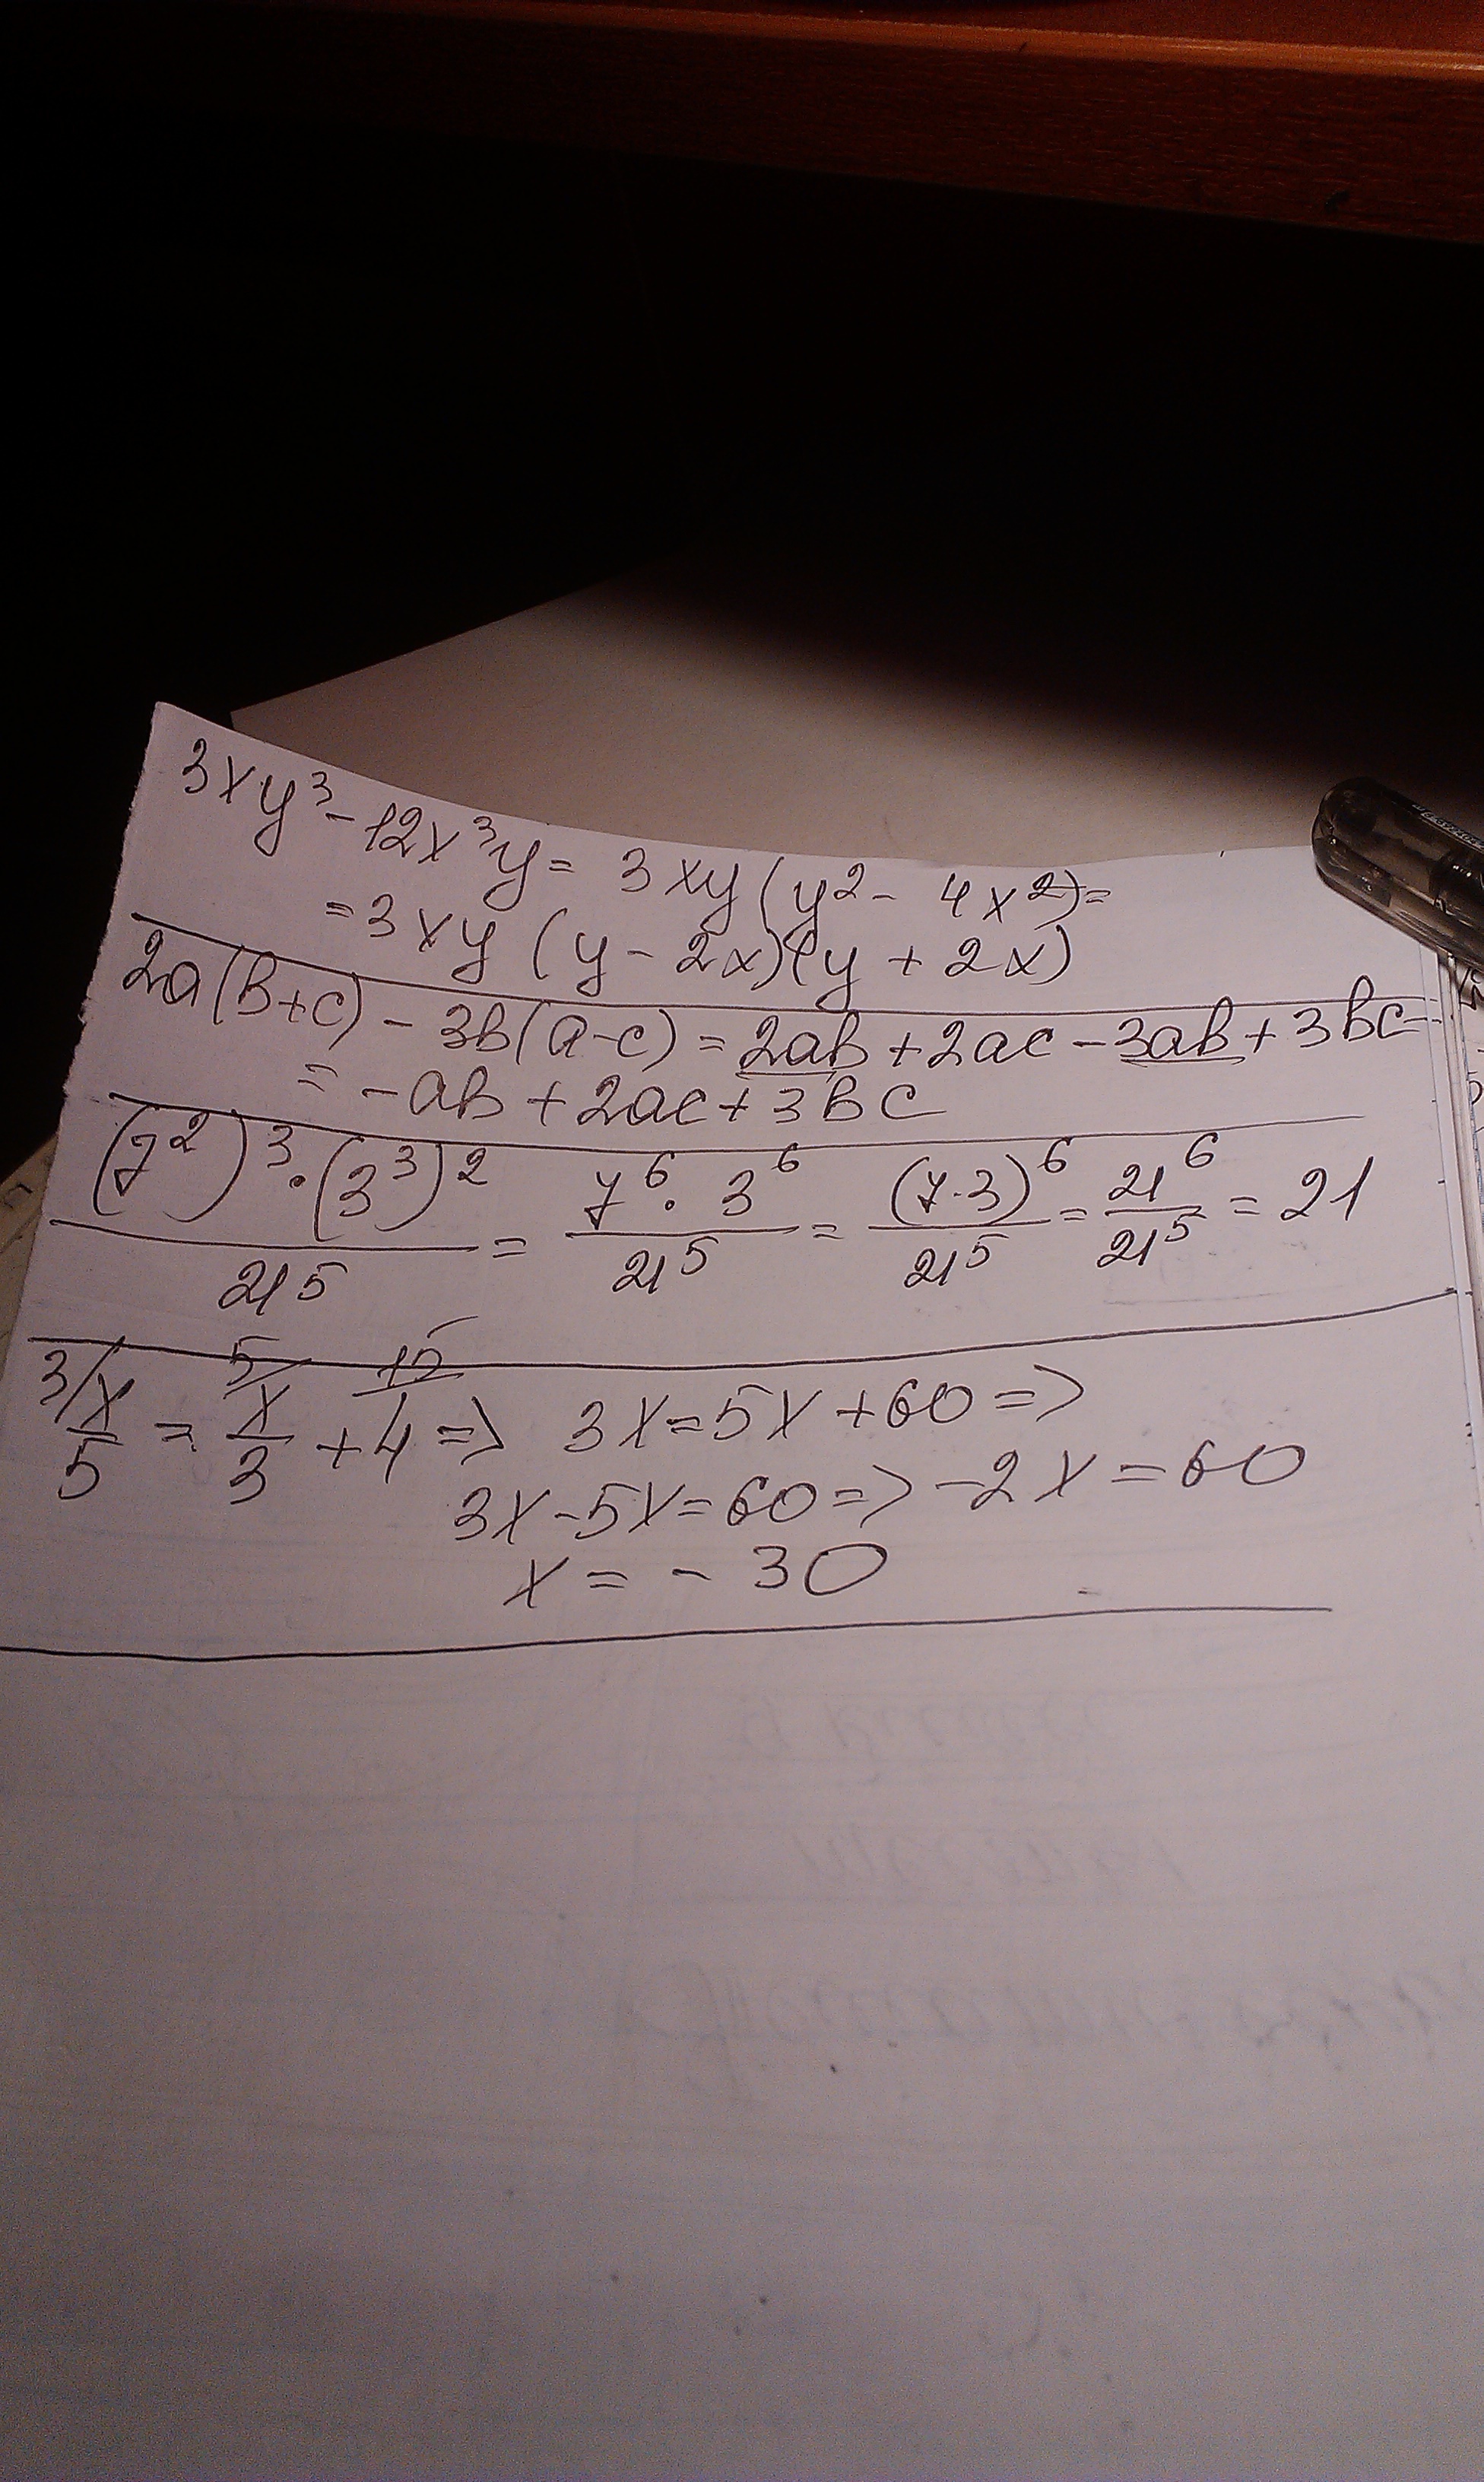 3xy³ - 12x³y = 3xy(y² - 4x²) =
= 3xy(y - 2x)(y + 2x)
2a(b+c) - 3b(a-c) = 2ab + 2ac - 3ab + 3bc =
= -ab + 2ac + 3bc
(7²)³·(3³)²/21⁵ = 7⁶·3⁶/21⁵ = (7·3)⁶/21⁵ = 21⁶/21⁵ = 21
3/ x/5 = 5/ x/3 + 15/ 4 => 3x = 5x + 60 =>
3x - 5x = 60 => -2x = 60
x = -30